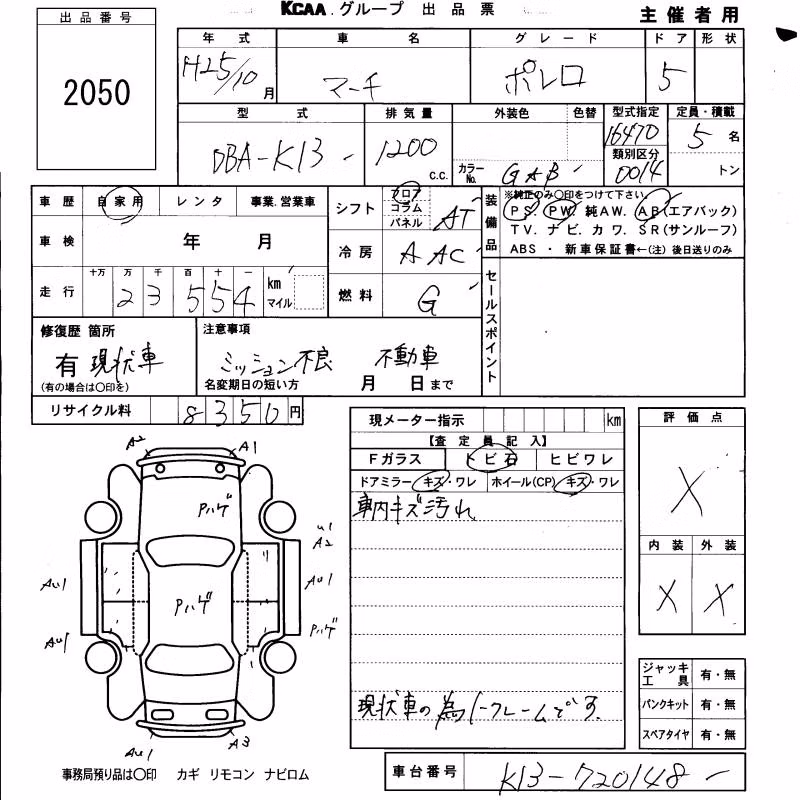 KCAA.グループ 出品票
主催者用
出品番号
2050
年式 車名 グレード ドア 形状
H25/10月 マーチ ボレロ 5
型式 排気量 外装色 色替 型式指定 定員・積載
DBA-K13 1200 c.c. カラーNo. GAB 16470 5名
類別区分
0014 トン
車歴 自家用 レンタ 事業.営業車
シフト フロア コラム パネル AT
装備品
※純正のみ〇印をつけて下さい。
PS. PW. 純AW. AB(エアバック)
TV. ナビ. カワ. SR(サンルーフ)
ABS ・ 新車保証書←(注) 後日送りのみ
車検 年 月
冷房 AAC
走行 十万 万 千 百 十 一
23554 km マイル
燃料 G
セールスポイント
修復歴 箇所
有 現状車
(有の場合は〇印を)
注意事項
ミッション不良 不動車
名変期日の短い方 月 日まで
リサイクル料 8350円
現メーター指示 km
【査定員記入】
Fガラス トビ石 ヒビワレ
ドアミラー キズ・ワレ ホイール(CP) キズ・ワレ
車内キズ汚れ
現状車の為ノークレームです.
評価点
X
内装 外装
X X
ジャッキ工具 有・無
パンクキット 有・無
スペアタイヤ 有・無
A2 A1
Pハゲ
U1
A2
AU1 AU1
Pハゲ
AU1 Pハゲ
AU1 A3
事務局預り品は〇印 カギ リモコン ナビロム
車台番号 K13-720148